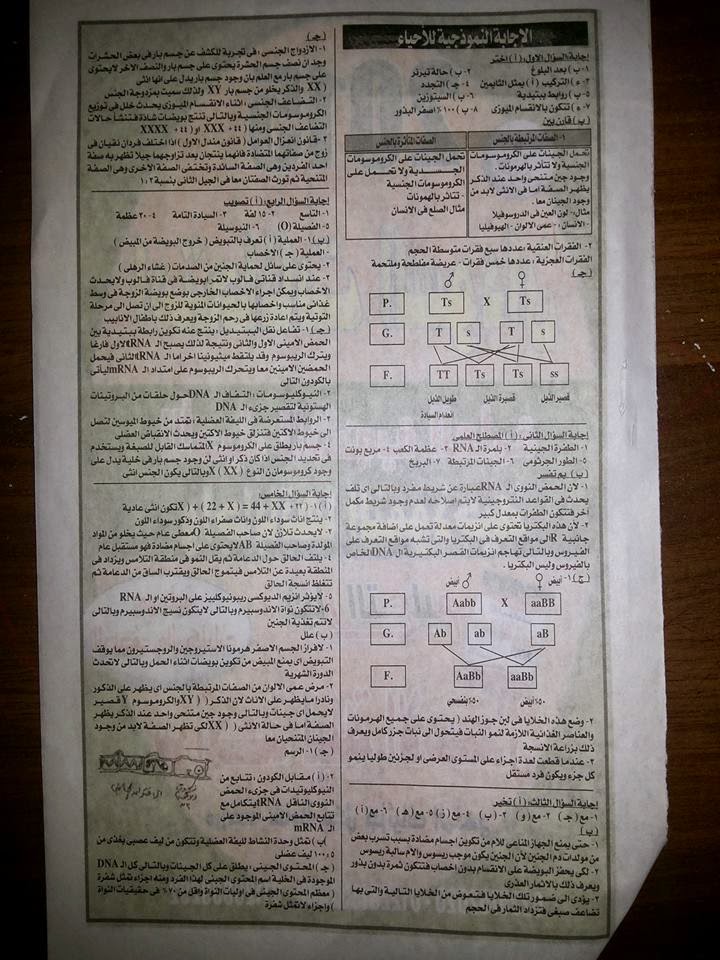 الإجابة النموذجية للأحياء
إجابة السؤال الأول: (أ) اختر
١- ب) بعد البلوغ ٢- ب) حالة تيرنر
٣- ء) التركيب (أ) يمثل التايمين ٤- ج) التجدد
٥- ب) روابط ببتيدية ٦- ب) السيتوزين
٧- ء) تتكون بالانقسام الميوزى ٨- ب) ١٠٠٪ أصفر البذور
ب) قارن بين
١- الصفات المرتبطة بالجنس
الصفات المتأثرة بالجنس
تحمل الجينات على الكروموسومات الجنسية ولا تتأثر بالهرمونات.
وجود جين متنحى واحد عند الذكر يظهر الصفة أما فى الأنثى لابد من وجود الجينان معا.
مثال- لون العين فى الدروسوفيلا
- الإنسان، - عمى الألوان - الهيوفيليا
تحمل الجينات على الكروموسومات الجسدية ولا تحمل على الكروموسومات الجنسية
- تتأثر بالهرمونات
مثال الصلع فى الإنسان
٢- الفقرات العنقية ، عددها سبع فقرات متوسطة الحجم
الفقرات العجزية ، عددها خمس فقرات - عريضة مفلطحة وملتحمة
(جـ)
♂ ♀
P. Ts X Ts
G. T s T s
F. TT Ts Ts ss
طويل الذيل قصيرة الذيل قصير الذيل
انعدام السيادة
إجابة السؤال الثانى: (أ) المصطلح العلمى
١- الطفرة الجينية ٢- بلمرة الـ RNA ٣- عظمة الكعب ٤- مربع بونت
٥- الطور الجرثومى ٦- الجينات المرتبطة ٧- البريخ
(ب) بم تفسر
١- لأن الحمض النووى الـ RNA عبارة عن شريط مفرد وبالتالى أى تلف
يحدث فى القواعد النتروجينية لا يتم إصلاحه لعدم وجود شريط مكمل
آخر فتتكون الطفرات بمعدل كبير
٢- لأن هذه البكتريا تحتوى على انزيمات معدلة تعمل على إضافة مجموعة
جانبية الى مواقع التعرف فى البكتريا والتى تشبه مواقع التعرف على
الفيروس وبالتالى تهاجم انزيمات القصر البكتيرية الـ DNA الخاص
بالفيروس وليس البكتريا.
(ج) ١-
♂ أبيض ♀ أبيض
P. Aabb X aaBB
G. Ab ab aB
F. AaBb aaBb
٥٠٪ بنفسجى ٥٠٪ أبيض
٢- وضع هذه الخلايا فى لبن جوز الهند (يحتوى على جميع الهرمونات
والعناصر الغذائية اللازمة لنمو النبات فيتحول الى نبات جزر كامل ويعرف
ذلك بزراعة الأنسجة
٣- عندما قطعت لعدة أجزاء على المستوى العرضى أو لجزئين طوليا ينمو
كل جزء ويكون فرد مستقل
إجابة السؤال الثالث: (أ) تخير
١- مع (جـ) ٢- مع (و) ٣- (ب) ٤- مع (ز) ٥- مع (هـ) ٦- مع (أ)
(ب)
١- حتى يمنع الجهاز المناعى للأم من تكوين أجسام مضادة بسبب تسرب بعض
من مولدات دم الجنين لأن الجنين يكون موجب ريسوس والأم سالبة ريسوس
٢- لكى يحفز البويضة على الانقسام بدون إخصاب فتتكون ثمرة بدون بذور
ويعرف ذلك بالإثمار العذرى
٣- يؤدى الى ضمور تلك الخلايا فتعوض من الخلايا التالية والتى بها
تضاعف صبغى فتزداد الثمار فى الحجم
(جـ)
١- الازدواج الجنسى ، فى تجربة للكشف عن جسم بار فى بعض الحشرات
وجد أن نصف جسم الحشرة يحتوى على جسم بار والنصف الآخر لا يحتوى
على جسم بار مع العلم بأن وجود جسم بار يدل على أنها أنثى
(XX والذكر يخلو من جسم بار XY ولذلك سميت بمزدوجة الجنس
٢- التضاعف الجنسى ، أثناء الانقسام الميوزى يحدث خلل فى توزيع
الكروموسومات الجنسية وبالتالى تنتج بويضات شاذة فتنشأ حالات
التضاعف الجنسى ومنها (٤٤+ XXX أو ٤٤+ XXXX
٣- قانون انعزال العوامل (قانون مندل الأول) إذا اختلف فردان نقيان فى
زوج من صفاتهما المتضادة فإنهما ينتجان بعد تزاوجهما جيلا تظهر به صفة
أحد الفردين وهى الصفة السائدة وتختفى الصفة الأخرى وهى الصفة
المتنحية ثم تورث الصفتان معا فى الجيل الثانى بنسبة ١:٣
إجابة السؤال الرابع: (أ) تصويب
١- التاسع ٢- ١٥ لفة ٣- السيادة التامة ٤- ٢٠ عظمة
٥- الفصيلة (O) ٦- النيوسيلة
(ب) ١- العملية (أ) تعرف بالتبويض (خروج البويضة من المبيض)
- العملية (جـ) الإخصاب
٢- يحتوى على سائل لحماية الجنين من الصدمات (غشاء الرهلى)
٣- عند انسداد قناتى فالوب لا تمر البويضة فى قناة فالوب ولا يحدث
الإخصاب ويمكن إجراء الإخصاب الخارجى بوضع بويضة الزوجة فى وسط
غذائى مناسب وإخصابها بالحيوانات المنوية للزوج الى أن تصل الى مرحلة
التوتية ويتم إعادة زرعها فى رحم الزوجة ويعرف ذلك بأطفال الأنابيب
(جـ) ١- تفاعل نقل الببتيديل ، ينتج عنه تكوين رابطة ببتيدية بين
الحمض الأمينى الأول والثانى ونتيجة لذلك يصبح الـ tRNA الأول فارغا
ويترك الريبوسوم وقد يلتقط ميثيونينا آخر أما الـ tRNA الثانى فيحمل
الحمضين الأمينين معا ويتحرك الريبوسوم على امتداد الـ mRNA ليأتى
بالكودون التالى
٢- النيوكليوسومات ، التفاف الـ DNA حول حلقات من البروتينات
الهستونية لتقصير جزىء الـ DNA
٣- الروابط المستعرضة فى الليفة العضلية ، تمتد من خيوط الميوسين لتصل
الى خيوط الأكتين فتنزلق خيوط الأكتين ويحدث الانقباض العضلى
٤- جسم بار يطلق على الكروموسوم X المتماسك القابل للصبغة ويستخدم
فى تحديد الجنس إذا كان ذكر أو أنثى لأن وجود جسم بار فى خلية يدل على
وجود كروموسومان من النوع X (XX) وبالتالى يكون الجنس أنثى
إجابة السؤال الخامس:
(أ) ١- ٢٢ + X) + ( 22 + X ) = 44 + XX تتكون أنثى عادية
٢- ينتج إناث سوداء اللون وإناث صفراء اللون وذكور سوداء اللون
٣- لا يحدث تلازن لأن صاحب الفصيلة O معطى عام حيث يخلو من المواد
المولدة وصاحب الفصيلة AB لا يحتوى على أجسام مضادة فهو مستقبل عام
٤- يلتف الحالق حول الدعامة ثم يقل النمو فى منطقة التلامس ويزداد فى
المنطقة بعيدة عن التلامس فيتموج الحالق ويقترب الساق من الدعامة ثم
تتغلظ أنسجة الحالق
٥- لا يؤثر انزيم الديوكسى ريبونيوكليز على البروتين أو الـ RNA
6- لا تتكون نواة الاندوسبيرم وبالتالى لا يتكون نسيج الاندوسبيرم وبالتالى
لا تتم تغذية الجنين
(ب) علل
١- لإفراز الجسم الأصفر هرمونا الاستيروجين والبروجستيرون مما يوقف
التبويض أى يمنع المبيض من تكوين بويضات أثناء الحمل وبالتالى لا تحدث
الدورة الشهرية
٢- مرض عمى الألوان من الصفات المرتبطة بالجنس أى يظهر على الذكور
ونادرا ما يظهر على الإناث لأن الذكر (XY) والكروموسوم Y قصير
لا يحمل أى جينات وبالتالى وجود جين متنحى واحد عند الذكر يظهر
الصفة أما فى حالة الأنثى (XX) لكى تظهر الصفة لابد من وجود
الجينان المتنحيان معا
(جـ) ١- الرسم
٢- (أ) مقابل الكودون ، تتابع من
النيوكليوتيدات فى جزىء الحمض
النووى الناقل tRNA يتكامل مع
تتابع الحمض الأمينى الموجود على
الـ mRNA
(ب) تمثل وحدة النشاط لليفة العضلية وتتكون من ليف عصبى يغذى من
٥ : ١٠٠ ليف عضلى
(جـ) المحتوى الجينى ، يطلق على كل الجينات وبالتالى كل الـ DNA
الموجودة فى الخلية اسم المحتوى الجينى لهذا الفرد ومنه أجزاء تمثل شفرة
(معظم المحتوى الجينى فى أوليات النواة وأقل من ٧٠٪ فى حقيقيات النواة
) وأجزاء لا تمثل شفرة